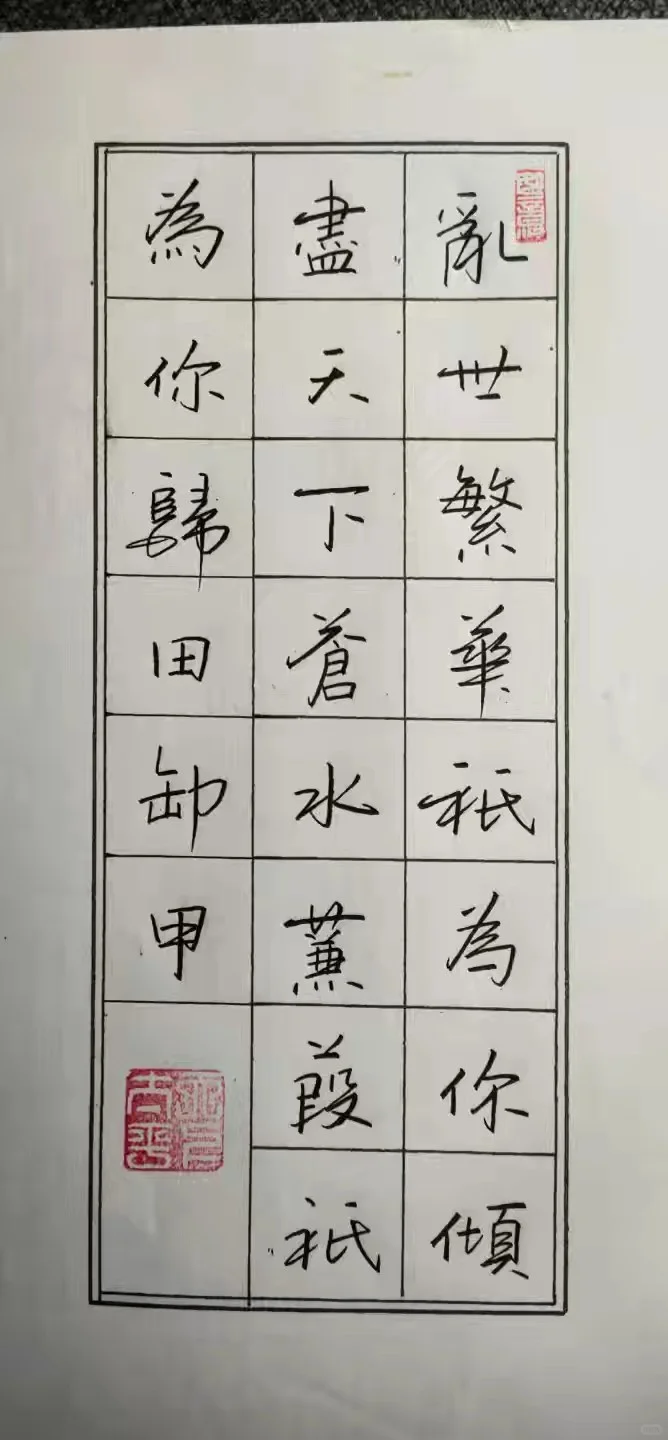 亂世繁華祇為你傾
盡天下蒼水蒹葭祇
為你歸田卸甲